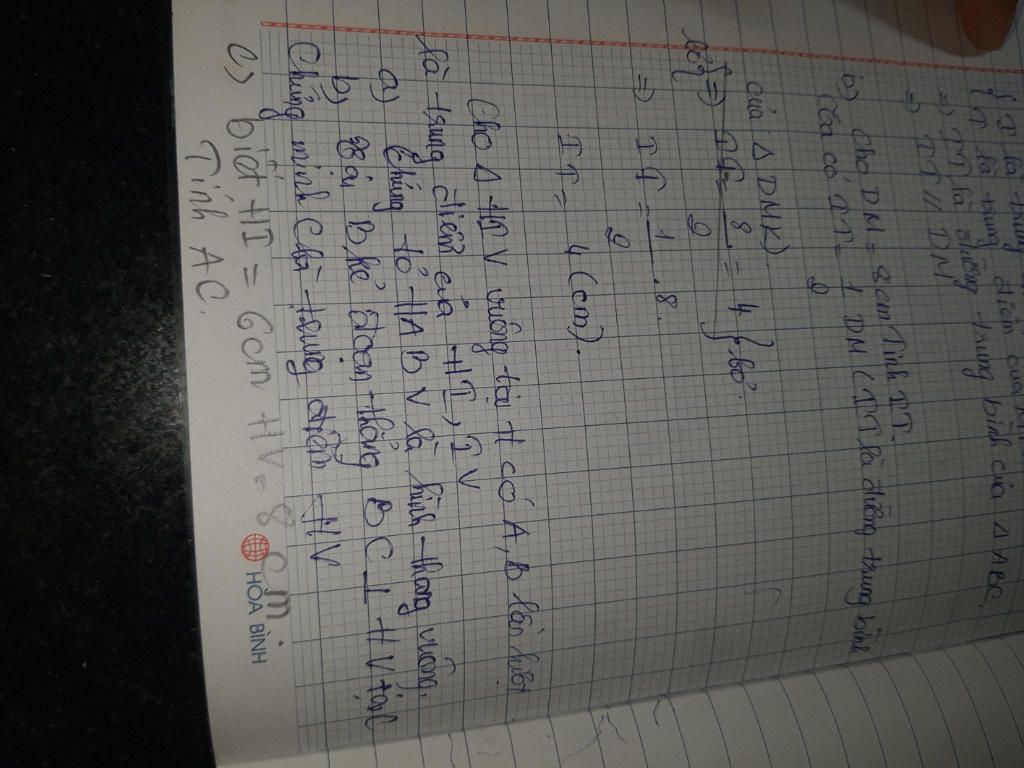 { I là trung
{ T là trung điểm của
⇒ IT là đường trung bình của Δ ABC.
⇒ IT // DM
b) cho DM = 8cm Tính IT.
Ta có IT = 1/2 DM (IT là đường trung bình
của Δ DMK)
bỏ { ⇒ IT = 8/2 = 4 } bỏ
⇒ IT = 1/2 . 8.
IT = 4 (cm).
Cho Δ HIV vuông tại H có A, B lần lượt
là trung điểm của HI, IV
a) Chứng tỏ HABV là hình thang vuông.
b) Gọi B kẻ đoạn thẳng BC ⊥ HV tại C
Chứng minh C là trung điểm HV
c) biết HI = 6cm HV = 8 cm.
Tính AC.
HÒA BÌNH